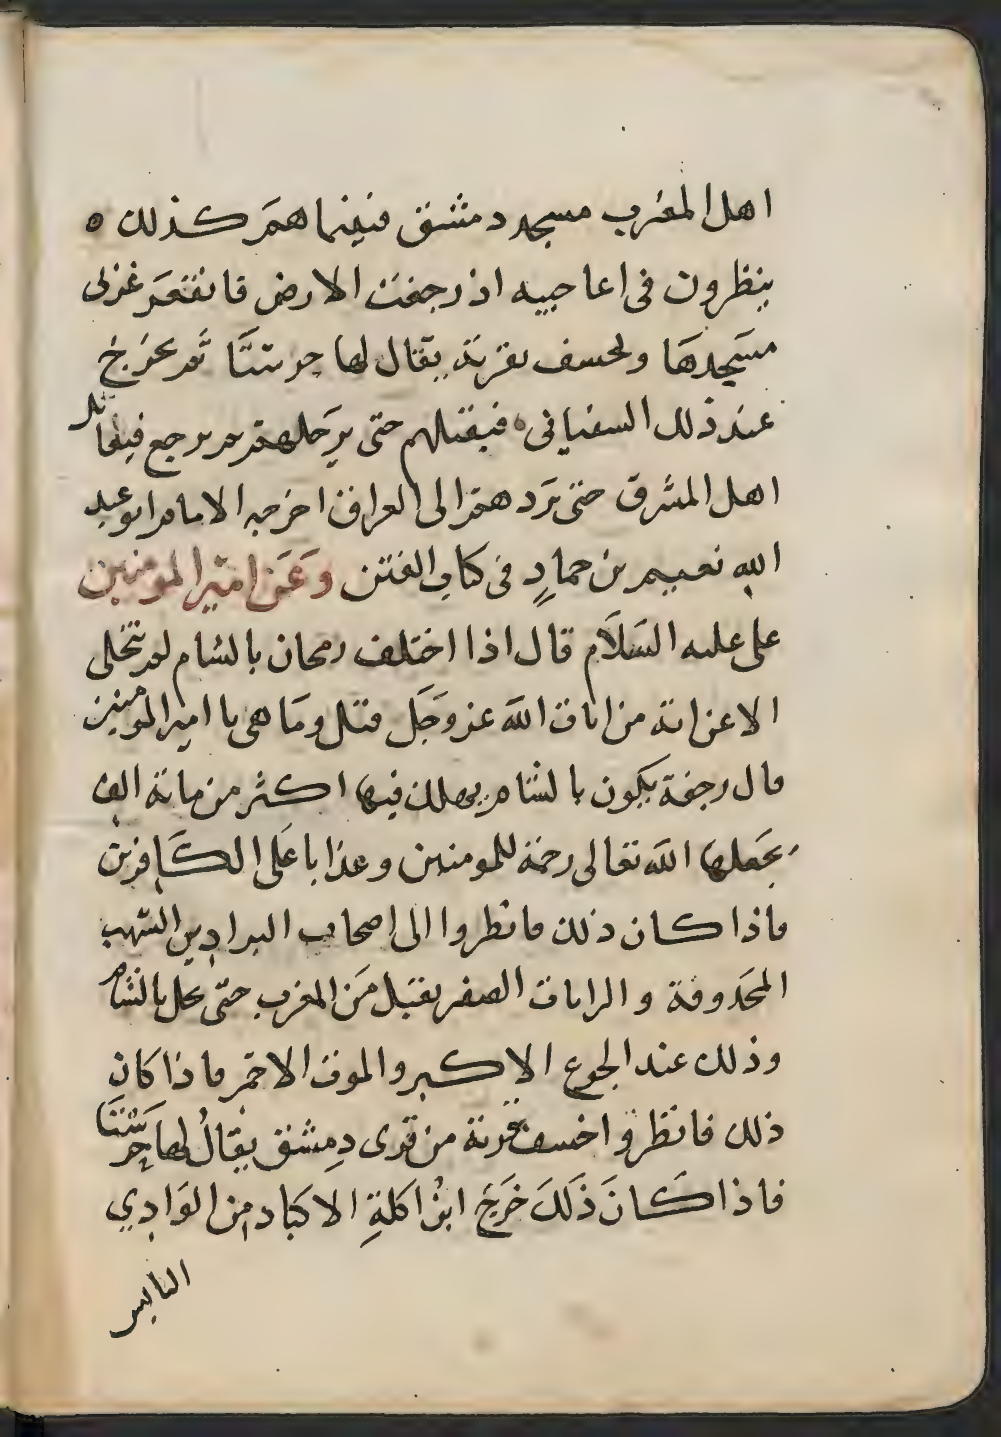 اهل المغرب مسجد دمشق فبينما هم كذلك ه
ينظرون فى اعاجيبه اذ رجفت الارض فانقعر غربى
مسجدها ويخسف بقرية يقال لها حرستا ثم يخرج
عند ذلك السفيانى ه فيقتلهم حتى يرحلهم ثم يرجع فيقاتل
اهل المشرق حتى يردهم الى العراق اخرجه الامام ابو عبد
الله نعيم بن حمادٍ فى كتاب الفتن وَعَن امير المومنين
على عليه السَلَام قال اذا اختلف رمحان بالشام لم تنجلى
الا عن اية من ايات الله عز وَجَل قيل ومَا هى يا امير المومنين
قال رجفة يكون بالشام يهلك فيها اكثر من مائة الف
يجَعلها الله تعالى رحمة للمومنين وعذابا عَلى الكَافرين
فاذا كان ذلك فانظروا الى اصحاب البرادين الشهب
المحَدوفة والرايات الصفر يقبل مَن المغرب حتّى يحل بالشام
وذلك عند الجوع الاكبر والموت الاحمر فاذا كان
ذلك فانظروا خسف قرية من قرى دِمشق يقالُ لها حَرَسْتَا
فاذا كَانَ ذَلَكَ خَرَجَ ابنُ اكلةِ الاكباد من الوَادِي
اليابس